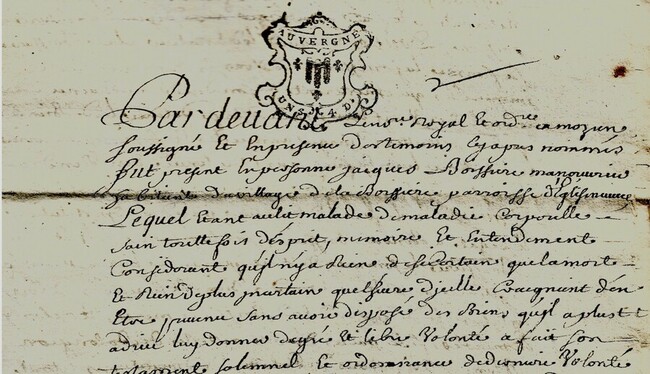 AUVERGNE
UN S. 4 D.
Pardevant Le no.re Royal Et ord.re
soussigné Et Enpresence Destemoins Cyapres nommés
fut present Enpersonne Jacques Boissiere manouvrier
habitant Duvillage dela Boissiere parroisse d'Egliseneuve
Lequel Etant aulit malade demaladie Corporelle
sain toutte fois d'esprit, memoire Et Entendement
Considerant quil n'ya Rien desi Certain quela mort
Et Rien deplus incertain quelheure d'jcelle Craignant d'en
Etre prevenu sans avoir disposé des Biens qu'il a plus t
a dieu luy donner degré Et libre Volonté a fait son
testament solemnel Et ordonnance dederniere Volonté